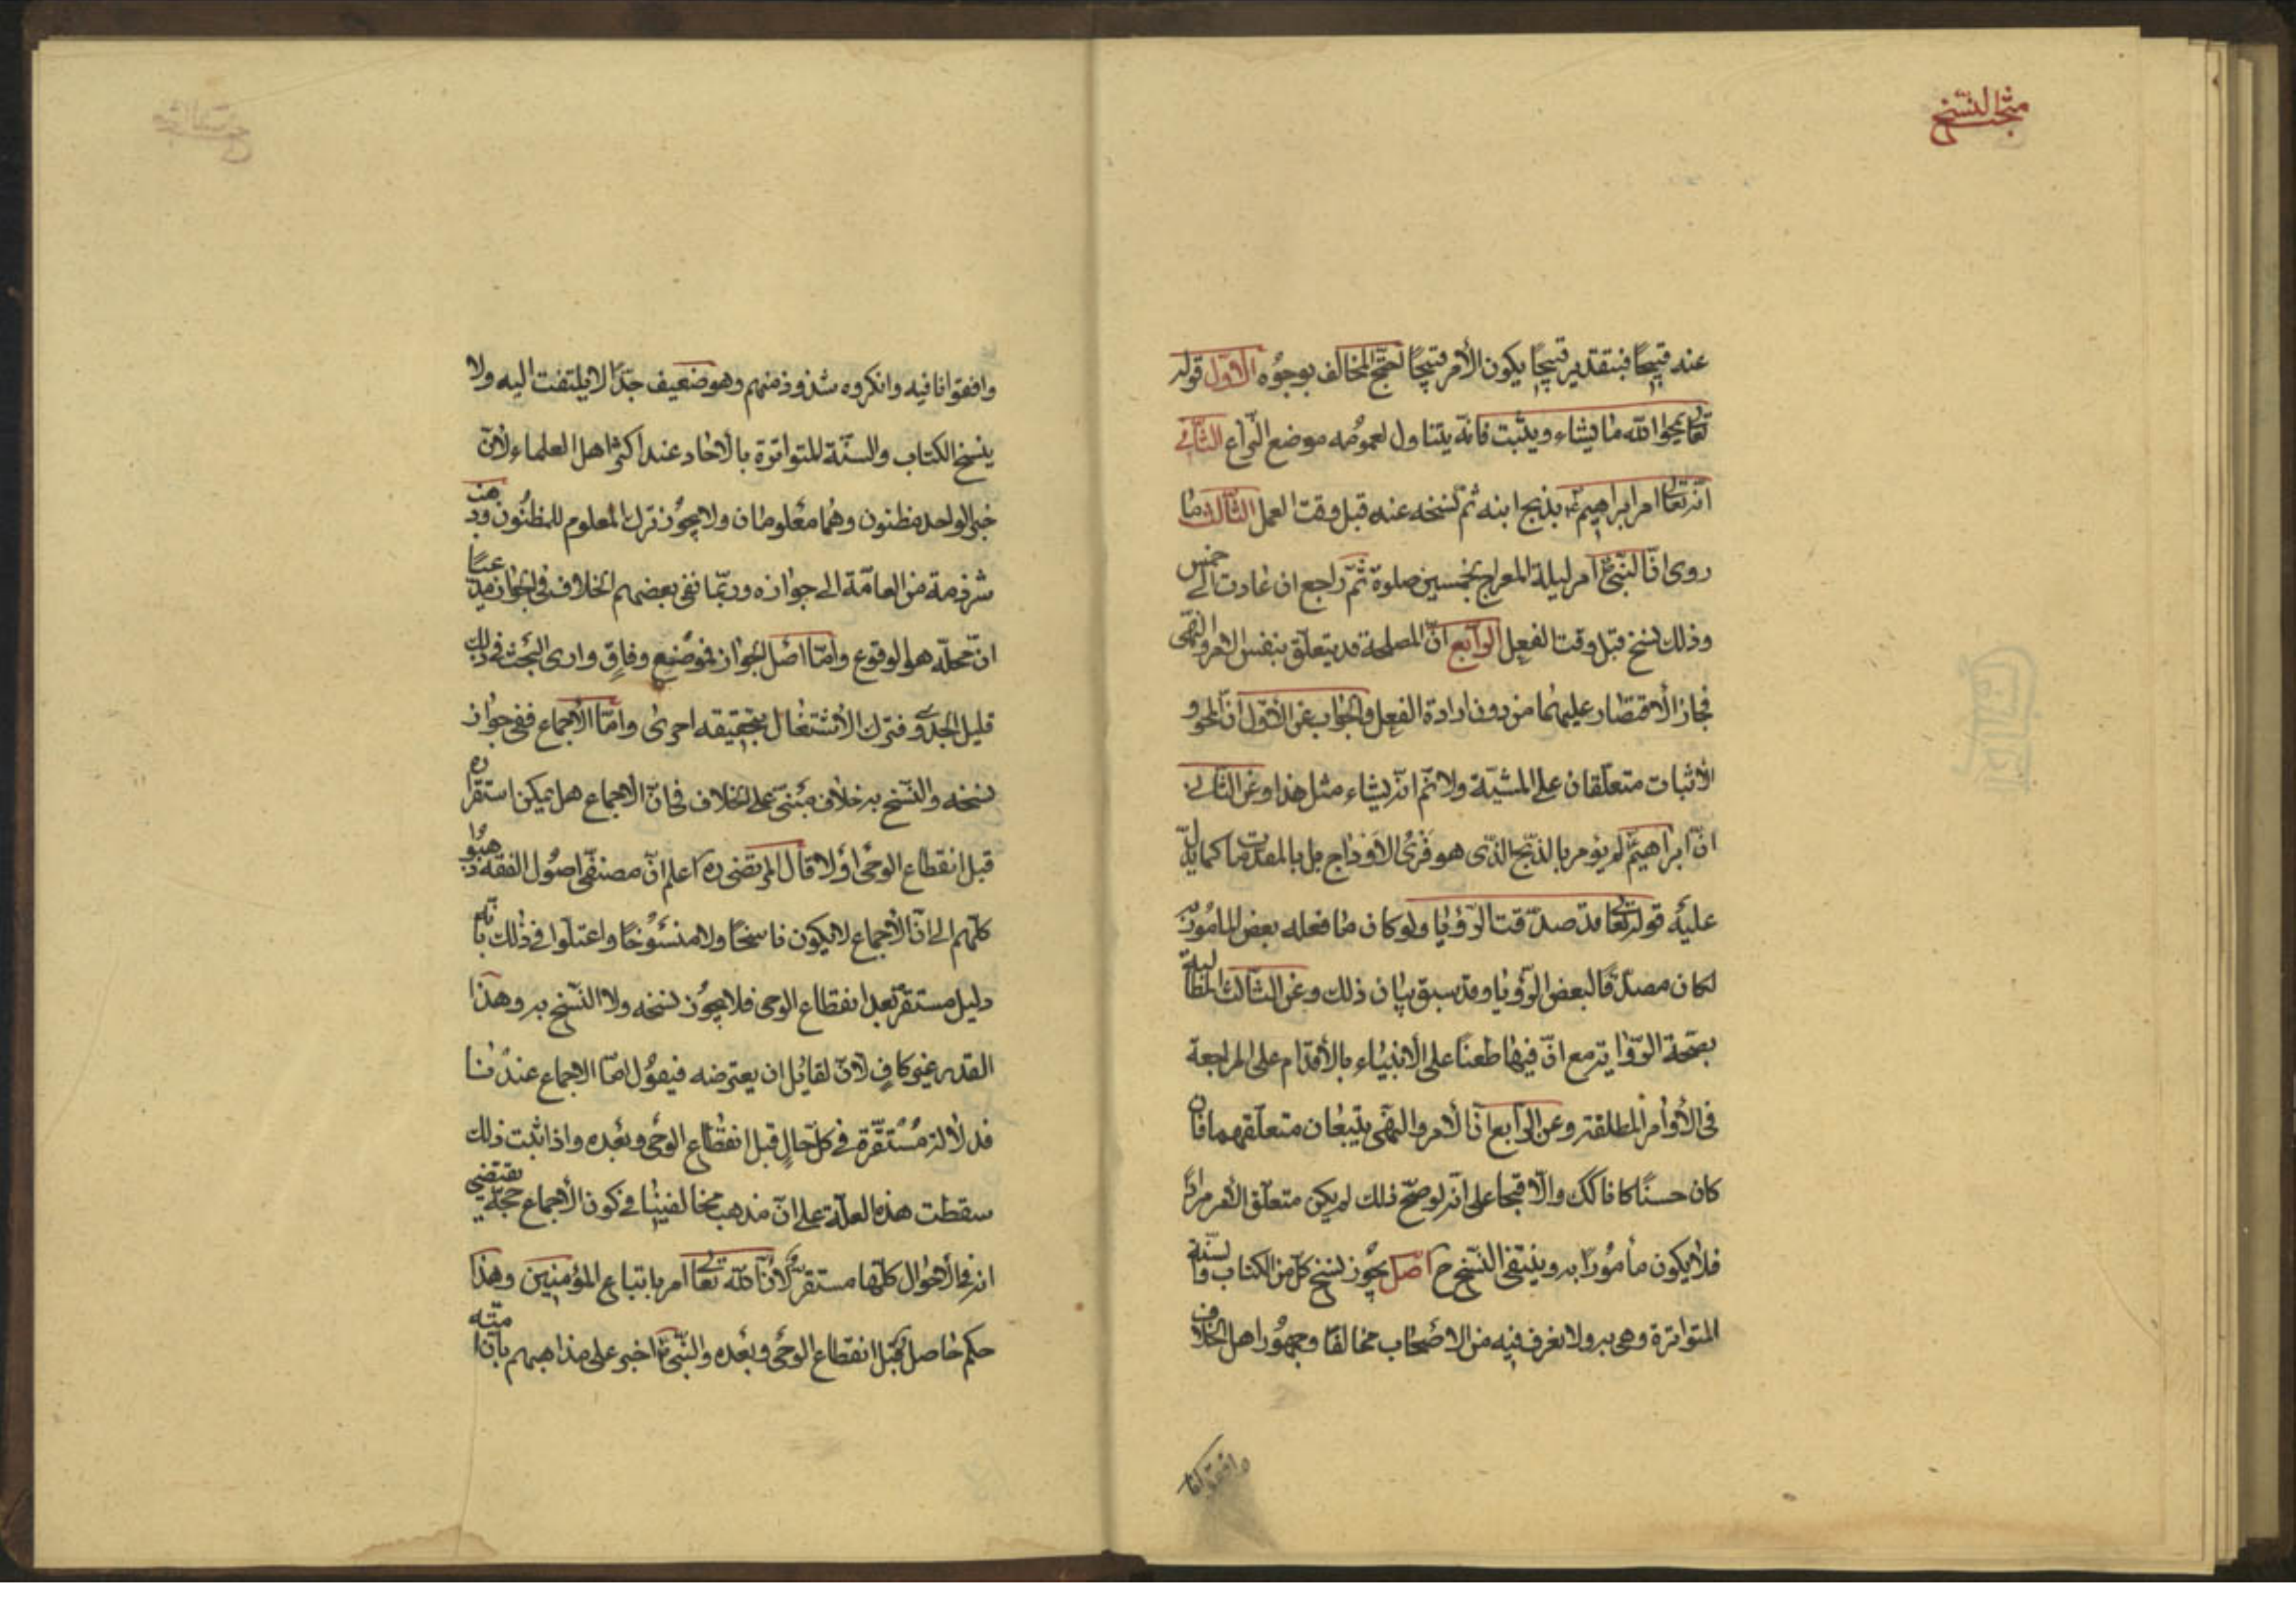 مبحث النسخ
عند قبيحا فبتقدير قبيحا يكون الأمر قبيحا احتج المخالف بوجوه الاول قوله
تعالى يمحوا الله ما يشاء ويثبت فانه يتناول لعمومه موضع النزاع الثاني
انه تعالى امر ابراهيم ع بذبح ابنه ثم نسخه عنه قبل وقت العمل الثالث ما
روى ان النبي ص امر ليلة المعراج بخمسين صلوة ثم راجع ان عادت الى خمس
وذلك نسخ قبل وقت الفعل الرابع ان المصلحة قد يتعلق بنفس الامر والنهى
فجاز الأقتصار عليهما من دون ارادة الفعل والجواب عن الأول ان المحو و
الأثبات متعلقان على المشية ولا نم انه يشاء مثل هذا وعن الثاني
ان ابراهيم ع لم يؤمر بالذبح الذى هو فرى الأوداج بل بالمقدمات كما يدل
عليه قوله تعالى قد صدقت الرؤيا ولو كان ما فعله بعض المأمور به
لكان مصدقا لبعض الرؤيا وقد سبق بيان ذلك وعن الثالث المطالبة
بصحة الرواية مع ان فيها طعنا على الانبياء بالأقدام على المراجعة
فى الأوامر المطلقة وعن الرابع ان الأمر والنهى يتبعان متعلقهما فان
كان حسنا كانا كك والا قبحا على انه لو صح ذلك لم يكن متعلق الامر مرادا
فلا يكون مأمورا به وينتفى النسخ ح اصل يجوز نسخ كل من الكتاب والسنة
المتواترة وهى به ولا نعرف فيه من الاصحاب مخالفا وجمهور اهل الخلاف
وافقوانا
وافقوانا فيه وانكروه شذوذ منهم وهو ضعيف جدا لا يلتفت اليه ولا
ينسخ الكتاب والسنة المتواترة بالاحاد عند اكثر اهل العلماء لأن
خبر الواحد مظنون وهما معلومان ولا يجوز ترك المعلوم للمظنون وذهب
شرذمة من العامة الى جوازه وربما نفى بعضهم الخلاف فى الجواز مدعيا
ان محله هو الوقوع واما اصل الجواز فموضع وفاق وارى البحث فى ذلك
قليل الجدوى فترك الأشتغال بتحقيقه احرى واما الأجماع ففى جواز
نسخه والنسخ به خلاف مبنى على الخلاف فى ان الاجماع هل يمكن استقراره
قبل انقطاع الوحى اولا قال المرتضى ره اعلم ان مصنفى اصول الفقه ذهبوا
كلهم الى ان الأجماع لا يكون ناسخا ولا منسوخا واعتلوا فى ذلك بانه
دليل مستقر بعد انقطاع الوحى فلا يجوز نسخه ولا النسخ به وهذا
القدر غير كاف لأن لقائل ان يعترضه فيقول اما الاجماع عندنا
فدلالته مستقرة فى كل حال قبل انقطاع الوحى وبعده واذا ثبت ذلك
سقطت هذه العلة على ان مذهب مخالفينا فى كون الأجماع حجة يقتضى
انه فى الأحوال كلها مستقر لان الله تعالى امر باتباع المؤمنين وهذا
حكم حاصل قبل انقطاع الوحى وبعده والنبي ص اخبر على مذاهبهم بان امته